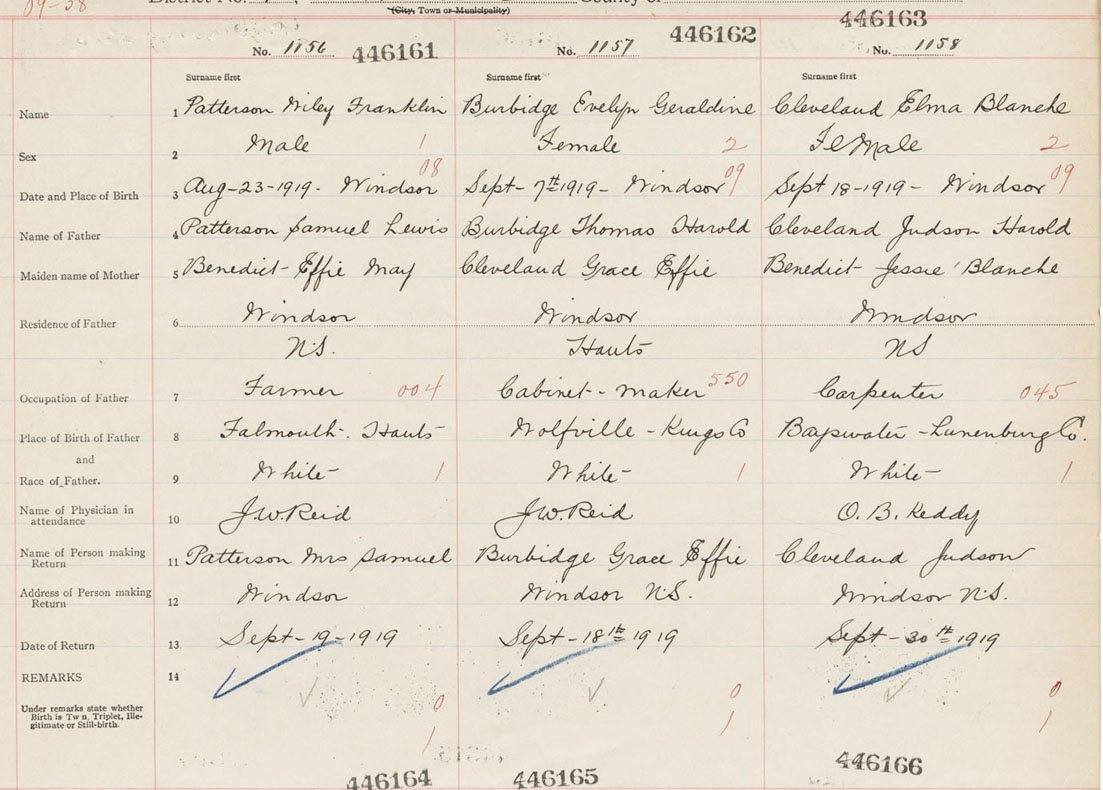 09-38
District No.
County of
(City, Town or Municipality)
No. 1156 446161
No. 1157 446162
446163
No. 1158
Surname first Surname first Surname first
Name 1 Patterson Wiley Franklin Burbidge Evelyn Geraldine Cleveland Elma Blanche
Sex 2 Male 1 Female 2 FeMale 2
08 09 09
Date and Place of Birth 3 Aug-23-1919- Windsor Sept- 7th 1919- Windsor Sept 18-1919- Windsor
Name of Father 4 Patterson Samuel Lewis Burbidge Thomas Harold Cleveland Judson Harold
Maiden name of Mother 5 Benedict- Effie May Cleveland Grace Effie Benedict- Jessie Blanche
Residence of Father 6 Windsor Windsor Windsor
N.S. Hants NS
Occupation of Father 7 Farmer 004 Cabinet-maker 550 Carpenter 045
Place of Birth of Father 8 Falmouth-. Hants Wolfville - Kings Co Bayswater - Lunenburg Co.
and
Race of Father. 9 White 1 White 1 White 1
Name of Physician in
attendance 10 J.W. Reid J.W. Reid O. B. Keddy
Name of Person making
Return 11 Patterson Mrs Samuel Burbidge Grace Effie Cleveland Judson
Address of Person making
Return 12 Windsor Windsor N.S. Windsor N.S.
Date of Return 13 Sept-19-1919 Sept-18th 1919 Sept-30th 1919
REMARKS 14
Under remarks state whether
Birth is Tw n, Triplet, Ille-
gitimate or Still-birth.
0 0 0
1 1 1
446164 446165 446166